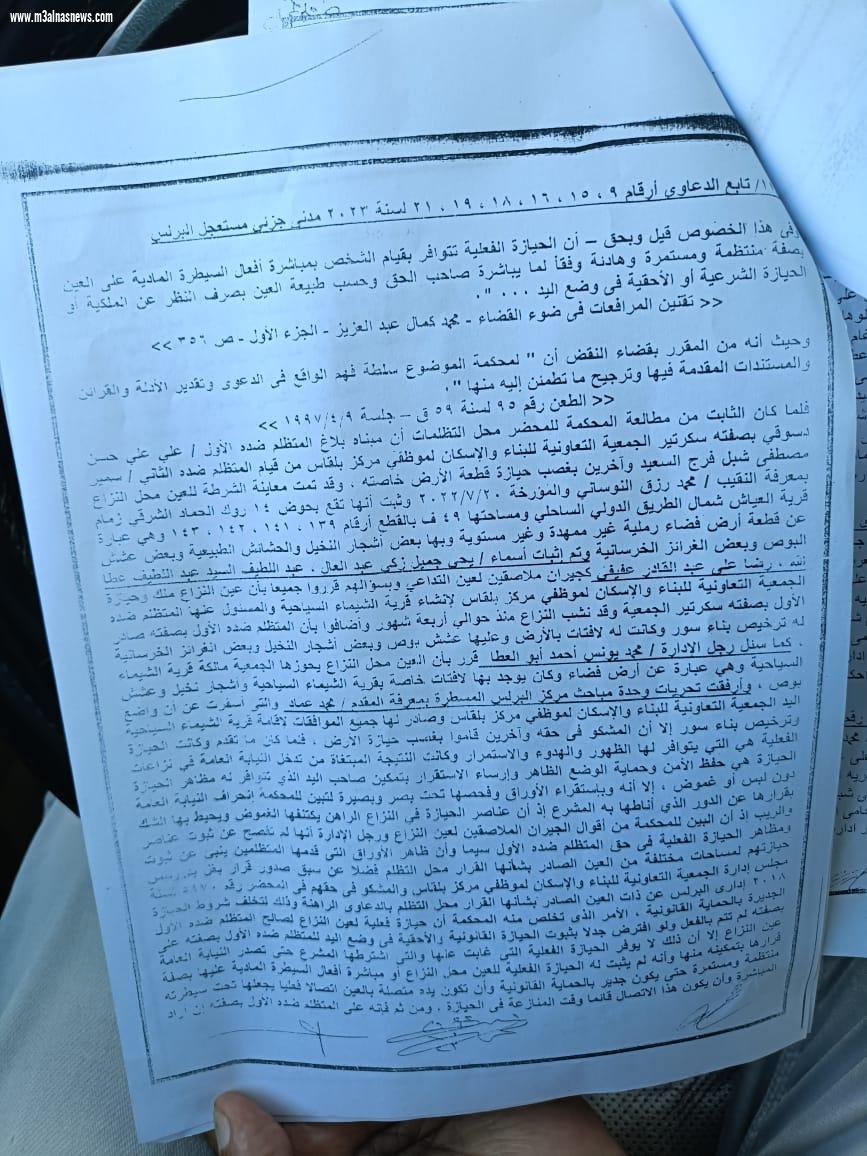 www.m3alnasnews.com
١١/ تابع الدعاوى أرقام ٩ ، ١٥ ، ١٦ ، ١٨ ، ١٩ ، ٢١ لسنة ٢٠٢٣ مدنى جزئى مستعجل البرلس
وفى هذا الخصوص قيل وبحق – أن الحيازة الفعلية تتوافر بقيام الشخص بمباشرة أفعال السيطرة المادية على العين
بصفة منتظمة ومستمرة وهادئة وفقاً لما يباشرة صاحب الحق وحسب طبيعة العين بصرف النظر عن الملكية أو
الحيازة الشرعية أو الأحقية فى وضع اليد ... " .
<< تقنين المرافعات فى ضوء القضاء - محمد كمال عبد العزيز - الجزء الأول - ص ٣٥٦ >>
وحيث أنه من المقرر بقضاء النقض أن " لمحكمة الموضوع سلطة فهم الواقع فى الدعوى وتقدير الأدلة والقرائن
والمستندات المقدمة فيها وترجيح ما تطمئن إليه منها " .
<< الطعن رقم ٩٥ لسنة ٥٩ ق – جلسة ١٩٩٧/٤/٩ >>
فلما كان الثابت من مطالعة المحكمة للمحضر محل التظلمات أن مبناه بلاغ المتظلم ضده الأول / علي علي حسن
دسوقي بصفته سكرتير الجمعية التعاونية للبناء والإسكان لموظفي مركز بلقاس من قيام المتظلم ضده الثاني / سمير
مصطفى شبل فرج السعيد وآخرين بغصب حيازة قطعة الأرض خاصته ، وقد تمت معاينة الشرطة للعين محل النزاع
بمعرفة النقيب / محمد رزق النوساني والمؤرخة ٢٠٢٢/٧/٢٠ وثبت أنها تقع بحوض ١٤ روك الحماد الشرقي زمام
قرية العياش شمال الطريق الدولي الساحلي ومساحتها ٤٩ ف بالقطع أرقام ١٣٩ ، ١٤١ ، ١٤٢ ، ١٤٣ وهي عبارة
عن قطعة أرض فضاء رملية غير ممهدة وغير مستوية وبها بعض أشجار النخيل والحشائش الطبيعية وبعض عشش
البوص وبعض الغرائز الخرسانية وتم إثبات أسماء / يحى جميل زكي عبد العال ، عبد اللطيف السيد عبد اللطيف عطا
الله ، رشا على عبد القادر عفيفى كجيران ملاصقين لعين التداعي وبسؤالهم قرروا جميعاً بأن عين النزاع ملك وحيازة
الجمعية التعاونية للبناء والإسكان لموظفي مركز بلقاس لإنشاء قرية الشيماء السياحية والمسئول عنها المتظلم ضده
الأول بصفته سكرتير الجمعية وقد نشب النزاع منذ حوالي أربعة شهور وأضافوا بأن المتظلم ضده الأول بصفته صادر
له ترخيص بناء سور وكانت له لافتات بالأرض وعليها عشش بوص وبعض أشجار النخيل وبعض الغرائز الخرسانية
، كما سئل رجل الإدارة / محمد يونس أحمد أبو العطا قرر بأن العين محل النزاع يحوزها الجمعية مالكة قرية الشيماء
السياحية وهي عبارة عن أرض فضاء وكان يوجد بها لافتات خاصة بقرية الشيماء السياحية وأشجار نخيل وعشش
بوص ، وأرفقت تحريات وحدة مباحث مركز البرلس المسطرة بمعرفة المقدم / محمد عماد والتي أسفرت عن أن واضع
اليد الجمعية التعاونية للبناء والإسكان لموظفي مركز بلقاس وصادر لها جميع الموافقات لاقامة قرية الشيماء السياحية
وترخيص بناء سور إلا أن المشكو فى حقه وآخرين قاموا بغصب حيازة الأرض ، فلما كان ما تقدم وكانت الحيازة
الفعلية هي التي يتوافر لها الظهور والهدوء والاستمرار وكانت النتيجة المبتغاة من تدخل النيابة العامة في نزاعات
الحيازة هي حفظ الأمن وحماية الوضع الظاهر وإرساء الاستقرار بتمكين صاحب اليد الذي تتوافر له مظاهر الحيازة
دون لبس أو غموض ، إلا أنه وباستقراء الأوراق وفحصها تحت بصر وبصيرة لتبين للمحكمة انحراف النيابة العامة
بقرارها عن الدور الذي أناطها به المشرع إذ أن عناصر الحيازة فى النزاع الراهن يكتنفها الغموض ويحيط بها الشك
والريب إذ أن البين للمحكمة من أقوال الجيران الملاصقين لعين النزاع ورجل الإدارة أنها لم تفصح عن ثبوت عناصر
ومظاهر الحيازة الفعلية فى حق المتظلم ضده الأول سيما وأن ظاهر الأوراق التي قدمها المتظلمين ينبئ عن ثبوت
حيازتهم لمساحات مختلفة من العين الصادر بشأنها القرار محل التظلم فضلا عن سبق صدور قرار
مجلس إدارة الجمعية التعاونية للبناء والإسكان لموظفي مركز بلقاس والمشكو في حقهم فى المحضر رقم ٥٩٧٠ لسنة
٢٠١٨ إداري البرلس عن ذات العين الصادر بشأنها القرار محل التظلم بالدعاوى الراهنة وذلك لتخلف شروط الحيازة
الجديرة بالحماية القانونية ، الأمر الذي تخلص منه المحكمة أن حيازة فعلية لعين النزاع لصالح المتظلم ضده الأول
بصفته لم تتم بالفعل ولو افترض جدلا بثبوت الحيازة القانونية والأحقية فى وضع اليد للمتظلم ضده الأول بصفته على
عين النزاع إلا أن ذلك لا يوفر الحيازة الفعلية التى غابت عنها والتى اشترطها المشرع حتى تصدر النيابة العامة
قرارها بتمكينه منها وأنه لم يثبت له الحيازة الفعلية للعين محل النزاع أو مباشرة أفعال السيطرة المادية عليها بصفة
منتظمة ومستمرة حتى يكون جدير بالحماية القانونية وأن تكون يده متصلة بالعين اتصالا فعليا يجعلها تحت سيطرته
المباشرة وأن يكون هذا الاتصال قائما وقت المنازعة فى الحيازة ، ومن ثم فإنه على المتظلم ضده الأول بصفته إن أراد